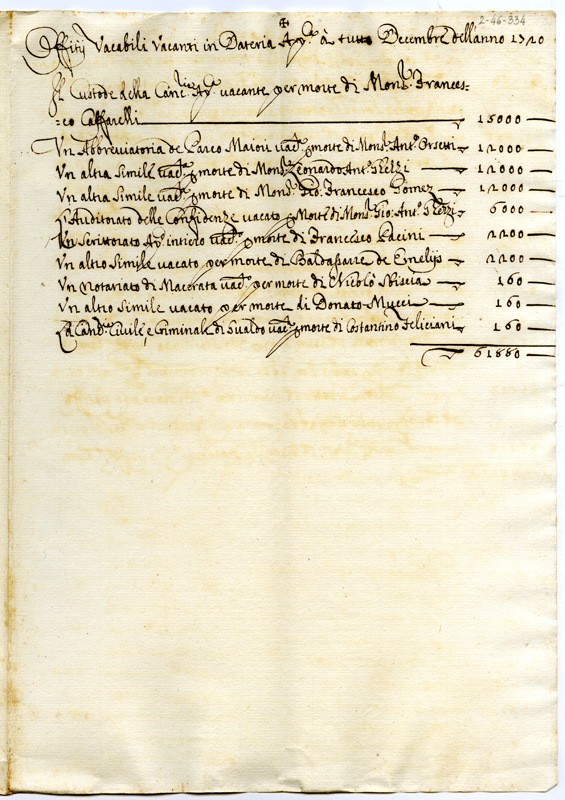 2-46-334
Offitij Vacabili Vacanti in Dateria Ap.ca à tutto Decembre dell'anno 1720
Il Custode della Canc.ria Ap.ca vacante per morte di Mons.r Frances=
=co Caffarelli 15000
Un Abbreviatoria de Parco Maiori vac.to p morte di Mons.r Ant.o Orsetti 12000
Un altra Simile vac.ta p morte di Mons.r Leonardo Ant.o 12000
Un altra Simile vac.ta p morte di Mons.r Gio: Francesco Gomez 12000
L'Auditorato delle Confidenze vacato p Morte di Mons.r Gio: Ant.o 6000
Un Scrittorato Ap.co intiero vac.to p morte di Francesco Pacini 2200
Un altro Simile vacato per morte di Baldassarre de Emelijs 2200
Un Notariato di Macerata vac.to per morte di Nicolò Sbiscia 160
Un altro Simile vacato per morte di Donato Mucci 160
La Canc.ria Civile, e Criminale di Sualdo vac.ta p morte di Costantino Feliciani 160
61880